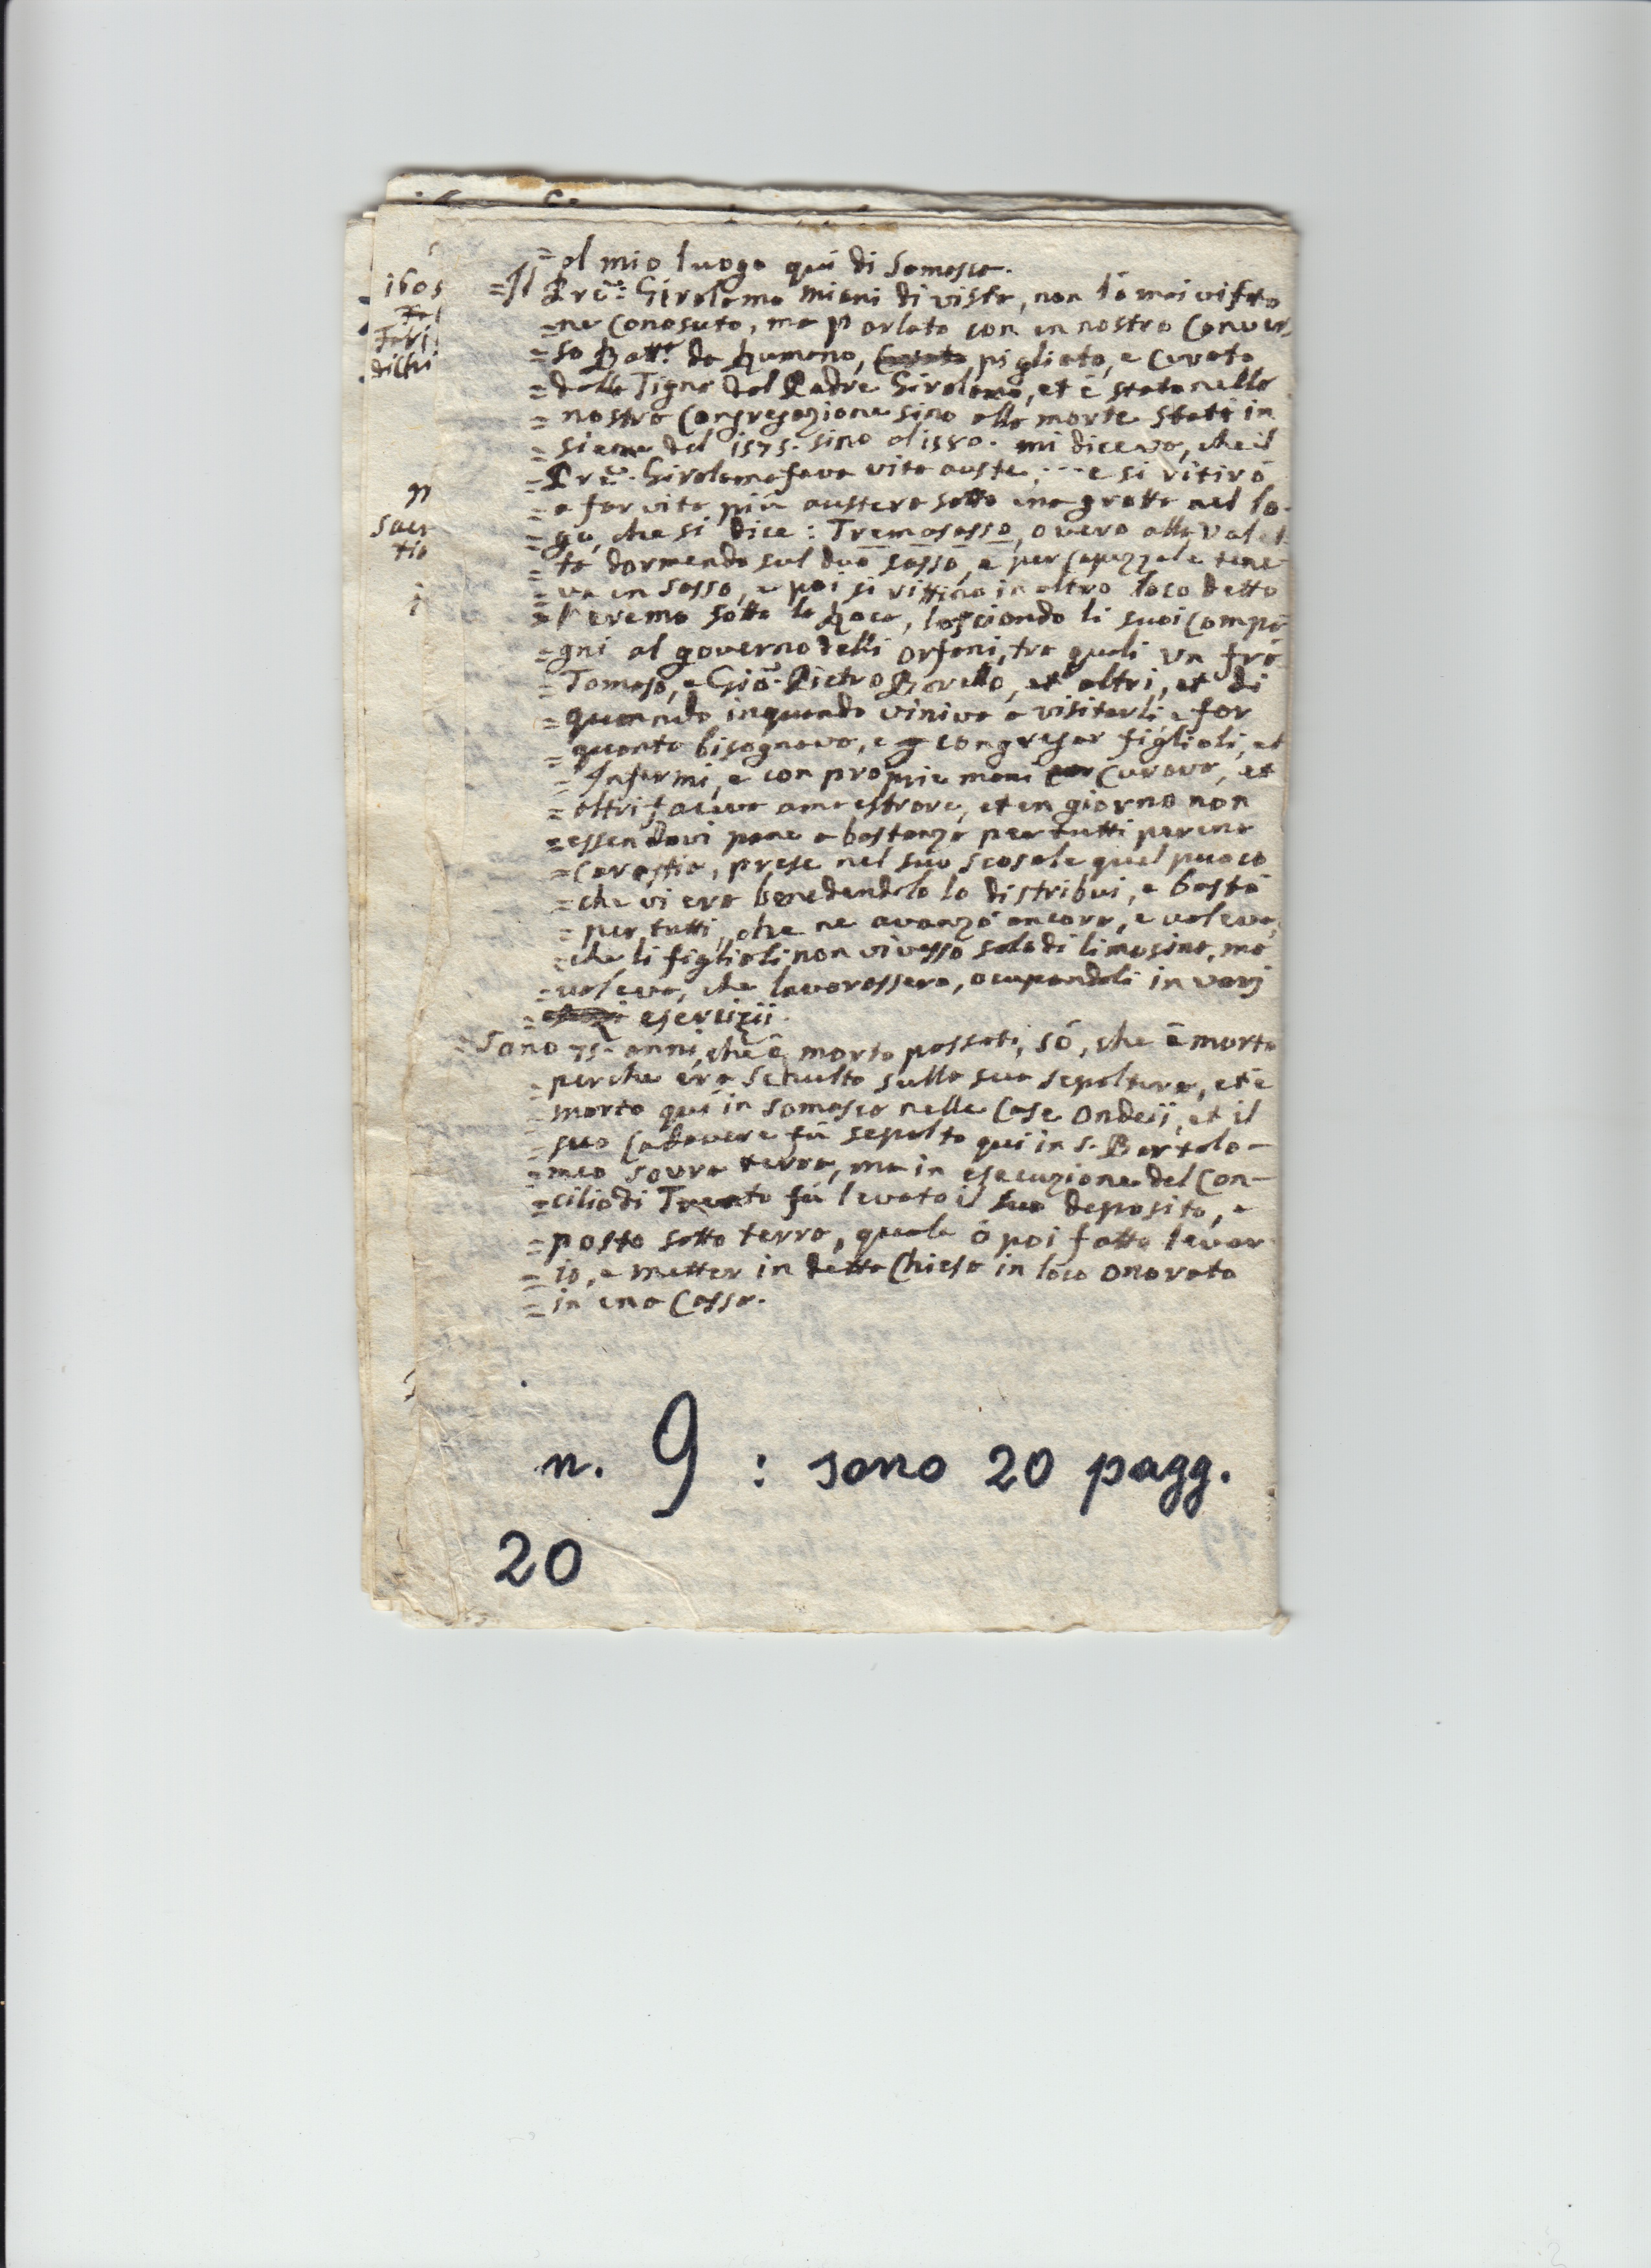 = al mio luogo qui di Somasca.
= Il Prē: Girolamo Miani di vista, non l'ò mai visto
= ne Conosuto, ma parlato con un nostro Conver
= so Batt.ª da Rumano, pigliato, e Curato
= dalla Tigna dal Padre Girolamo, et è stato nella
= nostra Congregazione sino alla morte stati in
= sieme del 1575. sino al 1580. mi diceva, che il
= Prē. Girolamo fava vita auste... e si ritirò
= a far vita più austera sotto una grotta nel lo-
= go, che si dice: Tremasasso, overo alla Valet
= ta dormendo sul duo sasso, e per Capezzale tene
= va un sasso, e poi si rittirò in altro loco detto
= l'eremo sotto la Roca, lasciando li suoi Compa
= gni al governo delli orfani, tra quali un fra
= Tomaso, e Gioā. Pietro Borello, et altri, et di
= quando inquando viniva a visitarli, e far
= quanto bisognava, e congregar figlioli, et
= Infermi, e con proprie mani Curava, et
= altri faceva amaestrare, et un giorno non
= essendovi pane a bastanza per tutti per una
= Carastia, prese nel suo scosale quel puoco
= che vi era benedendolo lo distribuì, e bastò
= per tutti, che ne avanzò ancora, e voleva,
= che li figlioli non vivesso solo di limosina, ma
= voleva, che lavorassero, ocupandoli in varj
= esercizii.
= Sono 75. anni, che è morto passati, sò, che è morto
= perche era Schulto sulla sua sepoltura, et è
= morto qui in Somasca nelle Case Ondeii, et il
= suo Cadavere fù sepolto qui in S. Bartolo-
= meo sovra terra, ma in esecuzione del Con-
= cilio di Trento fù levato il suo deposito, e
= posto sotto terra, quale ò poi fatto levar
= io, e metter in detta Chiesa in loco onorato
= in una Cassa.
n. 9 : sono 20 pagg.
20